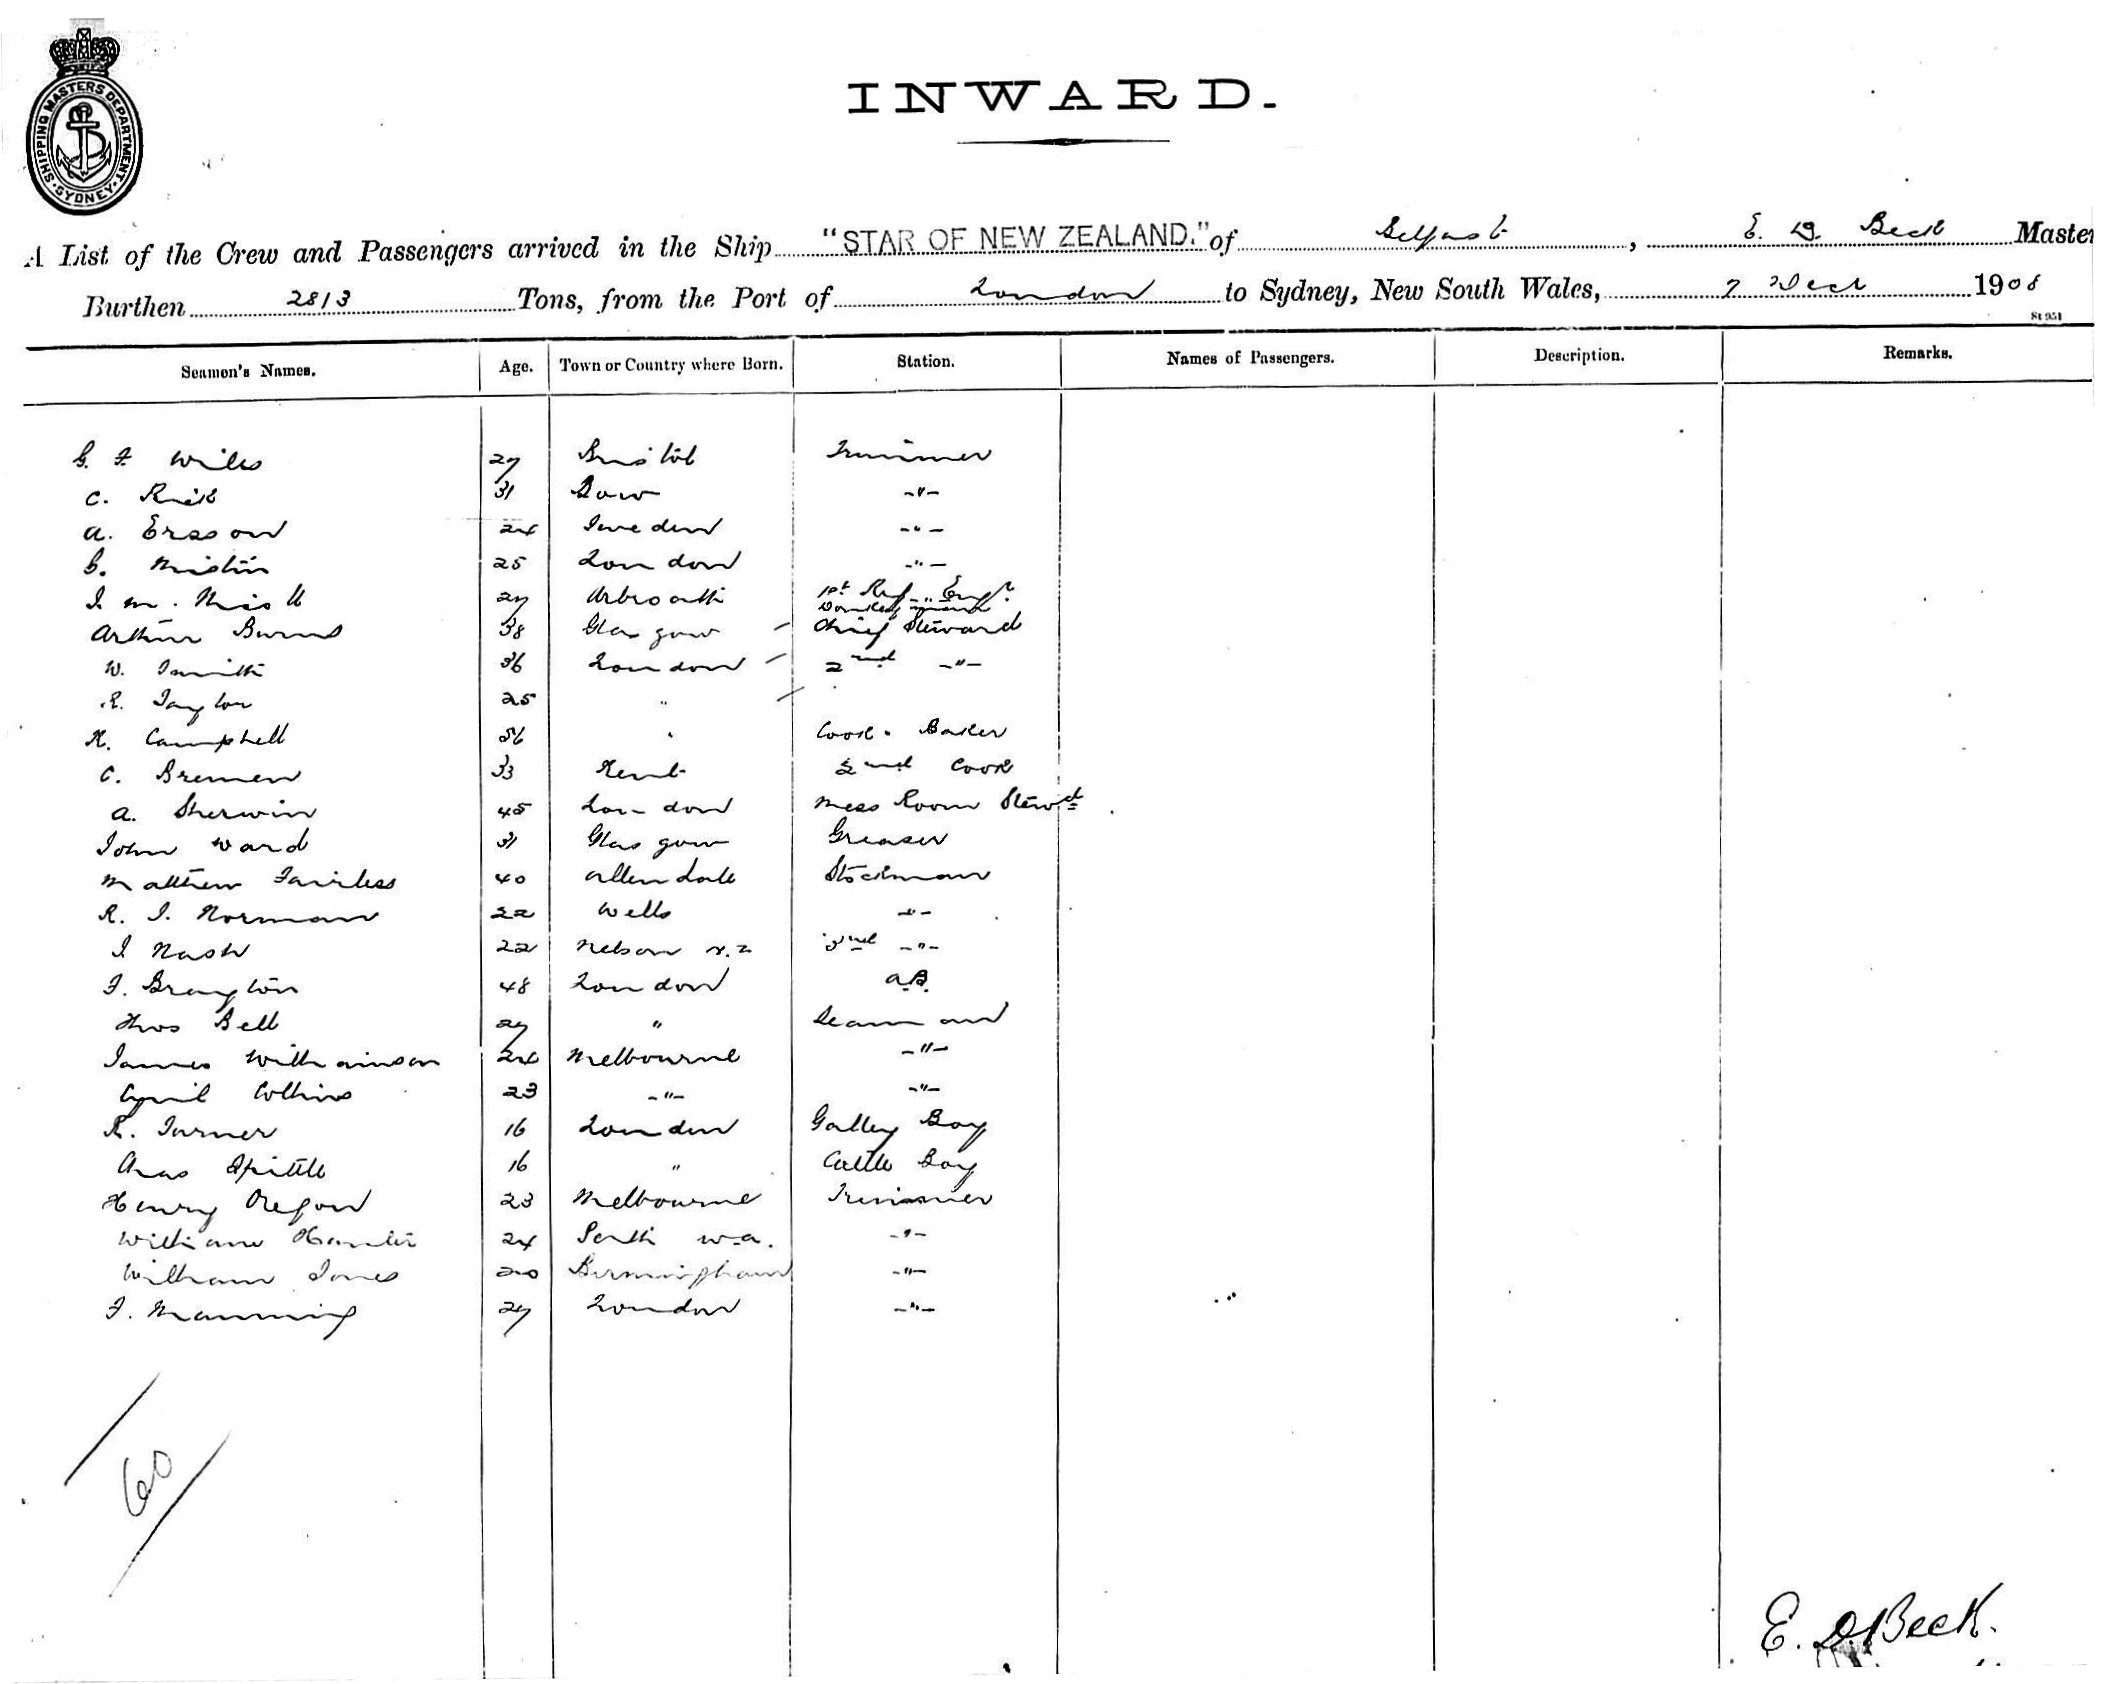 SHIPPING MASTERS DEPARTMENT · SYDNEY ·
INWARD.
A List of the Crew and Passengers arrived in the Ship "STAR OF NEW ZEALAND." of Belfast, E. D. Beck Master
Burthen 2813 Tons, from the Port of London to Sydney, New South Wales, 7 Decr 1908
St 951
Seamen's Names. Age. Town or Country where Born. Station. Names of Passengers. Description. Remarks.
G. F. Wiles 27 Bristol Trimmer
C. 31 -"-
A. Ersson 24 Sweden -"-
G. 25 London -"-
J. M. 27 Arbroath 1st Ref. Engr.
Donkeyman
Arthur Burns 38 Glasgow Chief Steward
W. Smith 36 London 2nd -"-
R. Taylor 25 "
R. Campbell 56 " Cook & Baker
C. Bremen 33 Kent 2nd Cook
A. Sherwin 45 London Mess Room Stewd
John Ward 31 Glasgow Greaser
Matthew Fairless 40 Allendale Stockman
R. J. Norman 22 Wells -"-
J Nash 22 Nelson N.Z -"-
F. Brayton 48 London A.B.
Thos Bell 27 " Seaman
James Williamson 24 Melbourne -"-
Cyril Collins 23 -"- -"-
R. Turner 16 London Galley Boy
Chas Spittle 16 " Cattle Boy
Henry 23 Melbourne Trimmer
William Hunter 24 Perth W.A. -"-
William Jones 20 Birmingham -"-
F. Manning 27 London -"-
60
E. D. Beck.